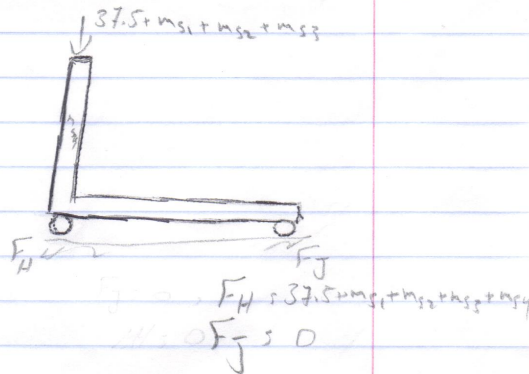 37.5+mS1+mS2+mS3
FH
FJ
FH = 37.5+mS1+mS2+mS3+mS4
FJ = 0